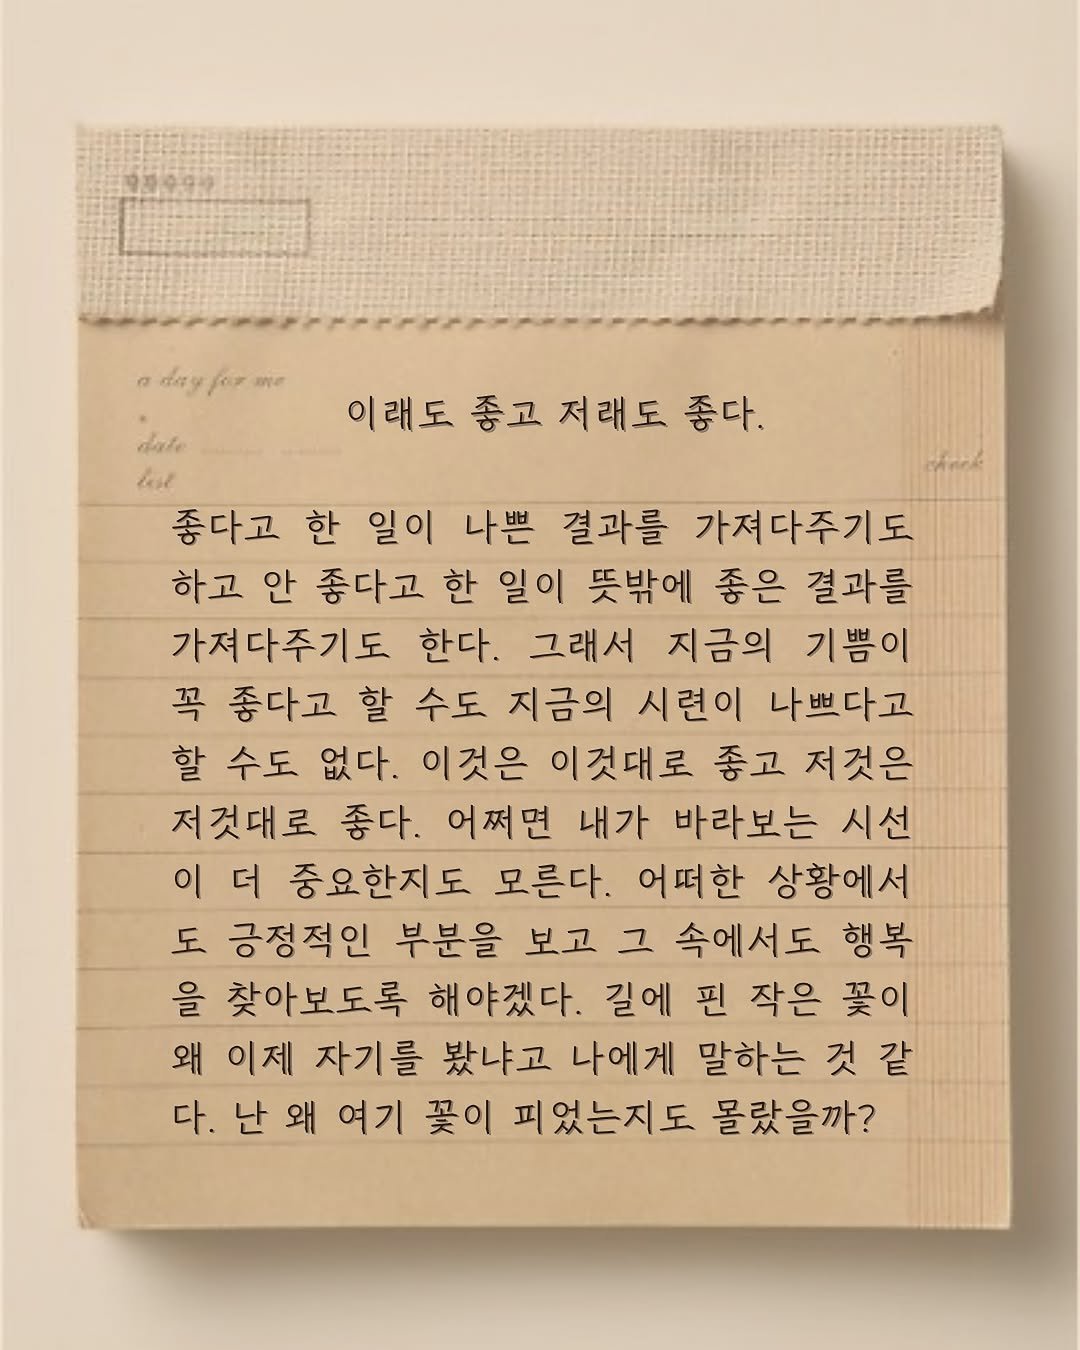 a day for me
이래도 좋고 저래도 좋다.
date
list
check
좋다고 한 일이 나쁜 결과를 가져다주기도
하고 안 좋다고 한 일이 뜻밖에 좋은 결과를
가져다주기도 한다. 그래서 지금의 기쁨이
꼭 좋다고 할 수도 지금의 시련이 나쁘다고
할 수도 없다. 이것은 이것대로 좋고 저것은
저것대로 좋다. 어쩌면 내가 바라보는 시선
이 더 중요한지도 모른다. 어떠한 상황에서
도 긍정적인 부분을 보고 그 속에서도 행복
을 찾아보도록 해야겠다. 길에 핀 작은 꽃이
왜 이제 자기를 봤냐고 나에게 말하는 것 같
다. 난 왜 여기 꽃이 피었는지도 몰랐을까?